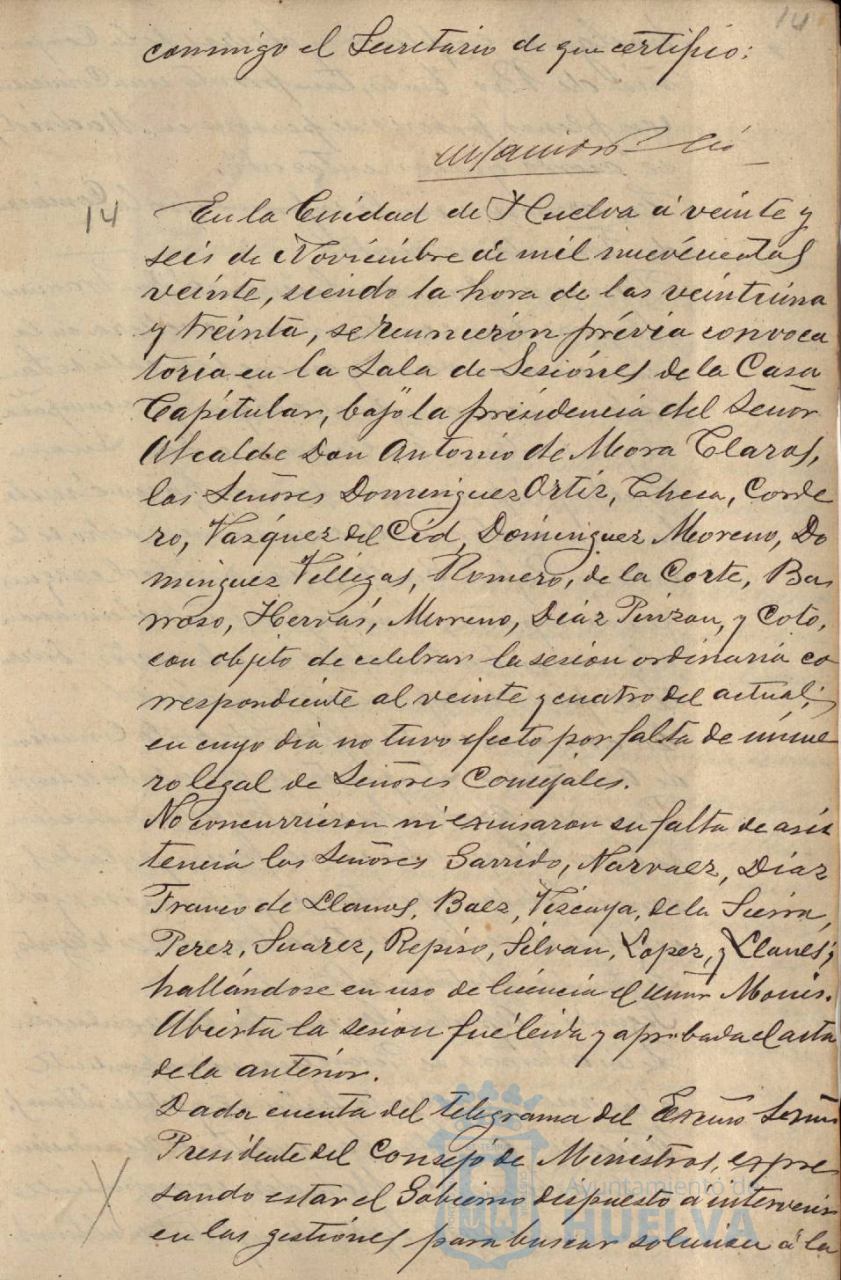 14
conmigo el Secretario de que certifico:
14 En la Ciudad de Huelva á veinte y
seis de Noviémbre de mil nuevécientos
veinte, siendo la hora de las veintiúna
y treinta, se reunieron prévia convoca
toria en la Sala de Sesiónes de la Casa
Capitular, bajo la presidencia del Señor
Alcalde Don Antonio de Mora Claros,
los Señores Dominguez Ortiz, Checa, Corde
ro, Vazquez del Cid, Domínguez Moreno, Do
minguez Villegas, Romero, de la Corte, Ba
rroso, Hervás, Moreno, Diaz Pinzon, y Coto,
con objeto de celebrar la sesion ordinaria co
rrespondiente al veinte y cuatro del actual;
en cuyo dia no tuvo efecto por falta de núme
ro legal de Señores Concejales.
No concurrieron ni excusaron su falta de asis
tencia los Señores Garrido, Narvaez, Diaz
Franco de Llanos, Baez, Vizcaya, de la Sierra,
Perez, Suarez, Repiso, Silvan, Lopez, y Llanes;
hallándose en uso de licencia el Señor Monis.
Abierta la sesion fué leida y aprobada el acta
de la anterior.
Dada cuenta del telegrama del Excmo Señor
Presidente del Consejo de Ministros, expre
sando estar el Gobierno dispuesto a intervenir
en las gestiónes para buscar solucion á la
Ayuntamiento de
HUELVA